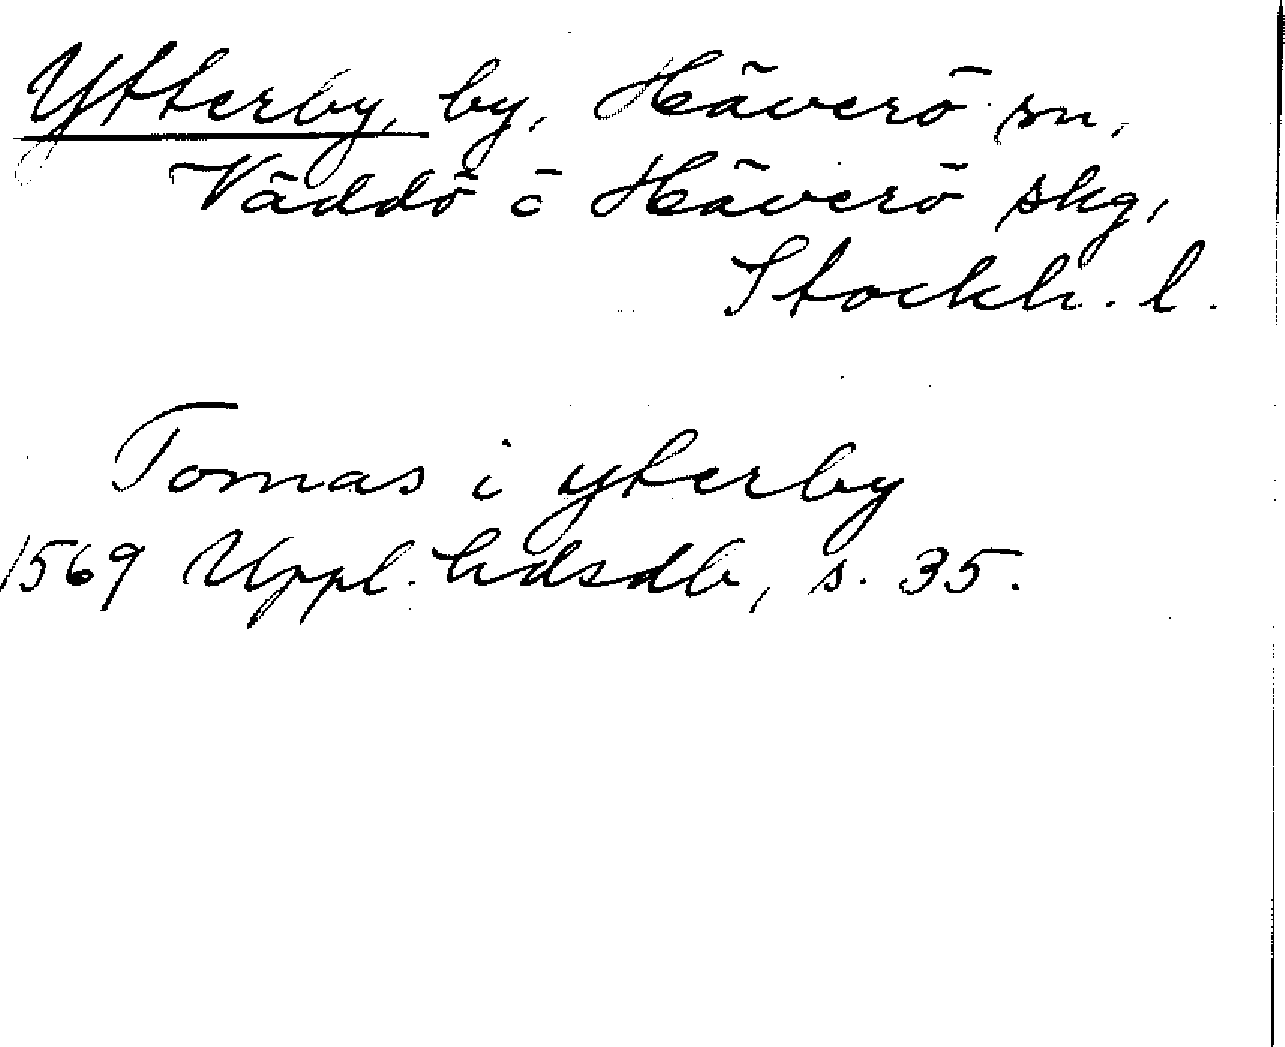 Ytterby, by, Häverö sn,
Väddö o Häverö skg,
Stockh. l.
Tomas i yterby
1569 Uppl. hdsdb, s. 35.